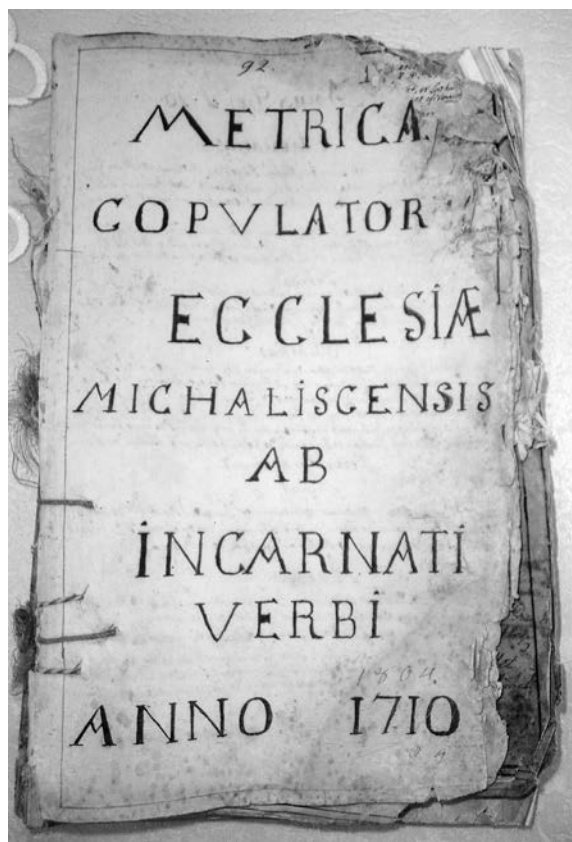 92.
METRICA
COPVLATOR
ECCLESIÆ
MICHALISCENSIS
AB
INCARNATI
VERBI
1804.
ANNO 1710